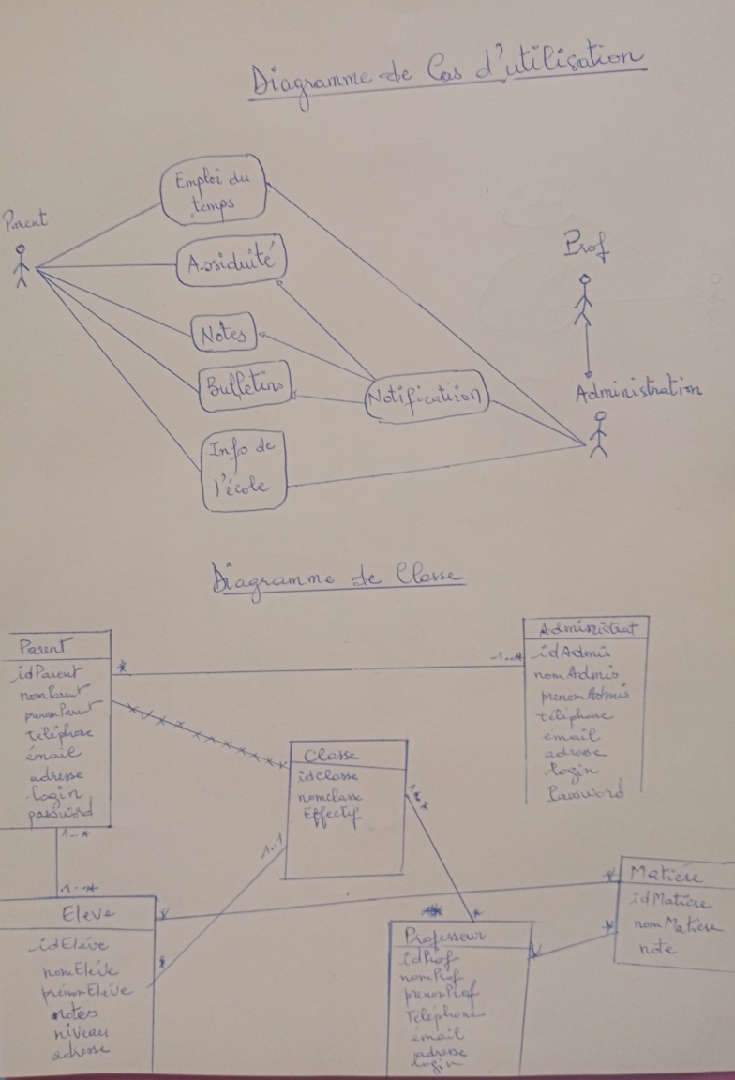 Diagramme de Cas d'utilisation
Parent
Emploi du
temps
Assiduité
Notes
Bulletins
Info de
l'école
Notification
Prof
Administration
Diagramme de Classe
Parent
idParent
nomParent
prenomParent
téléphone
émail
adresse
login
password
*
1..*
Administrat
idAdmis
nomAdmis
prenomAdmis
téléphone
email
adresse
login
Password
Classe
idClasse
nomclasse
Effectif
1..1
1..*
1..*
Eleve
idEléve
nomEléve
prénomEléve
notes
niveau
adresse
*
*
*
*
Professeur
idProf
nomProf
prenomProf
Téléphone
émail
adresse
login
*
*
Matiére
idMatiere
nomMatiere
note